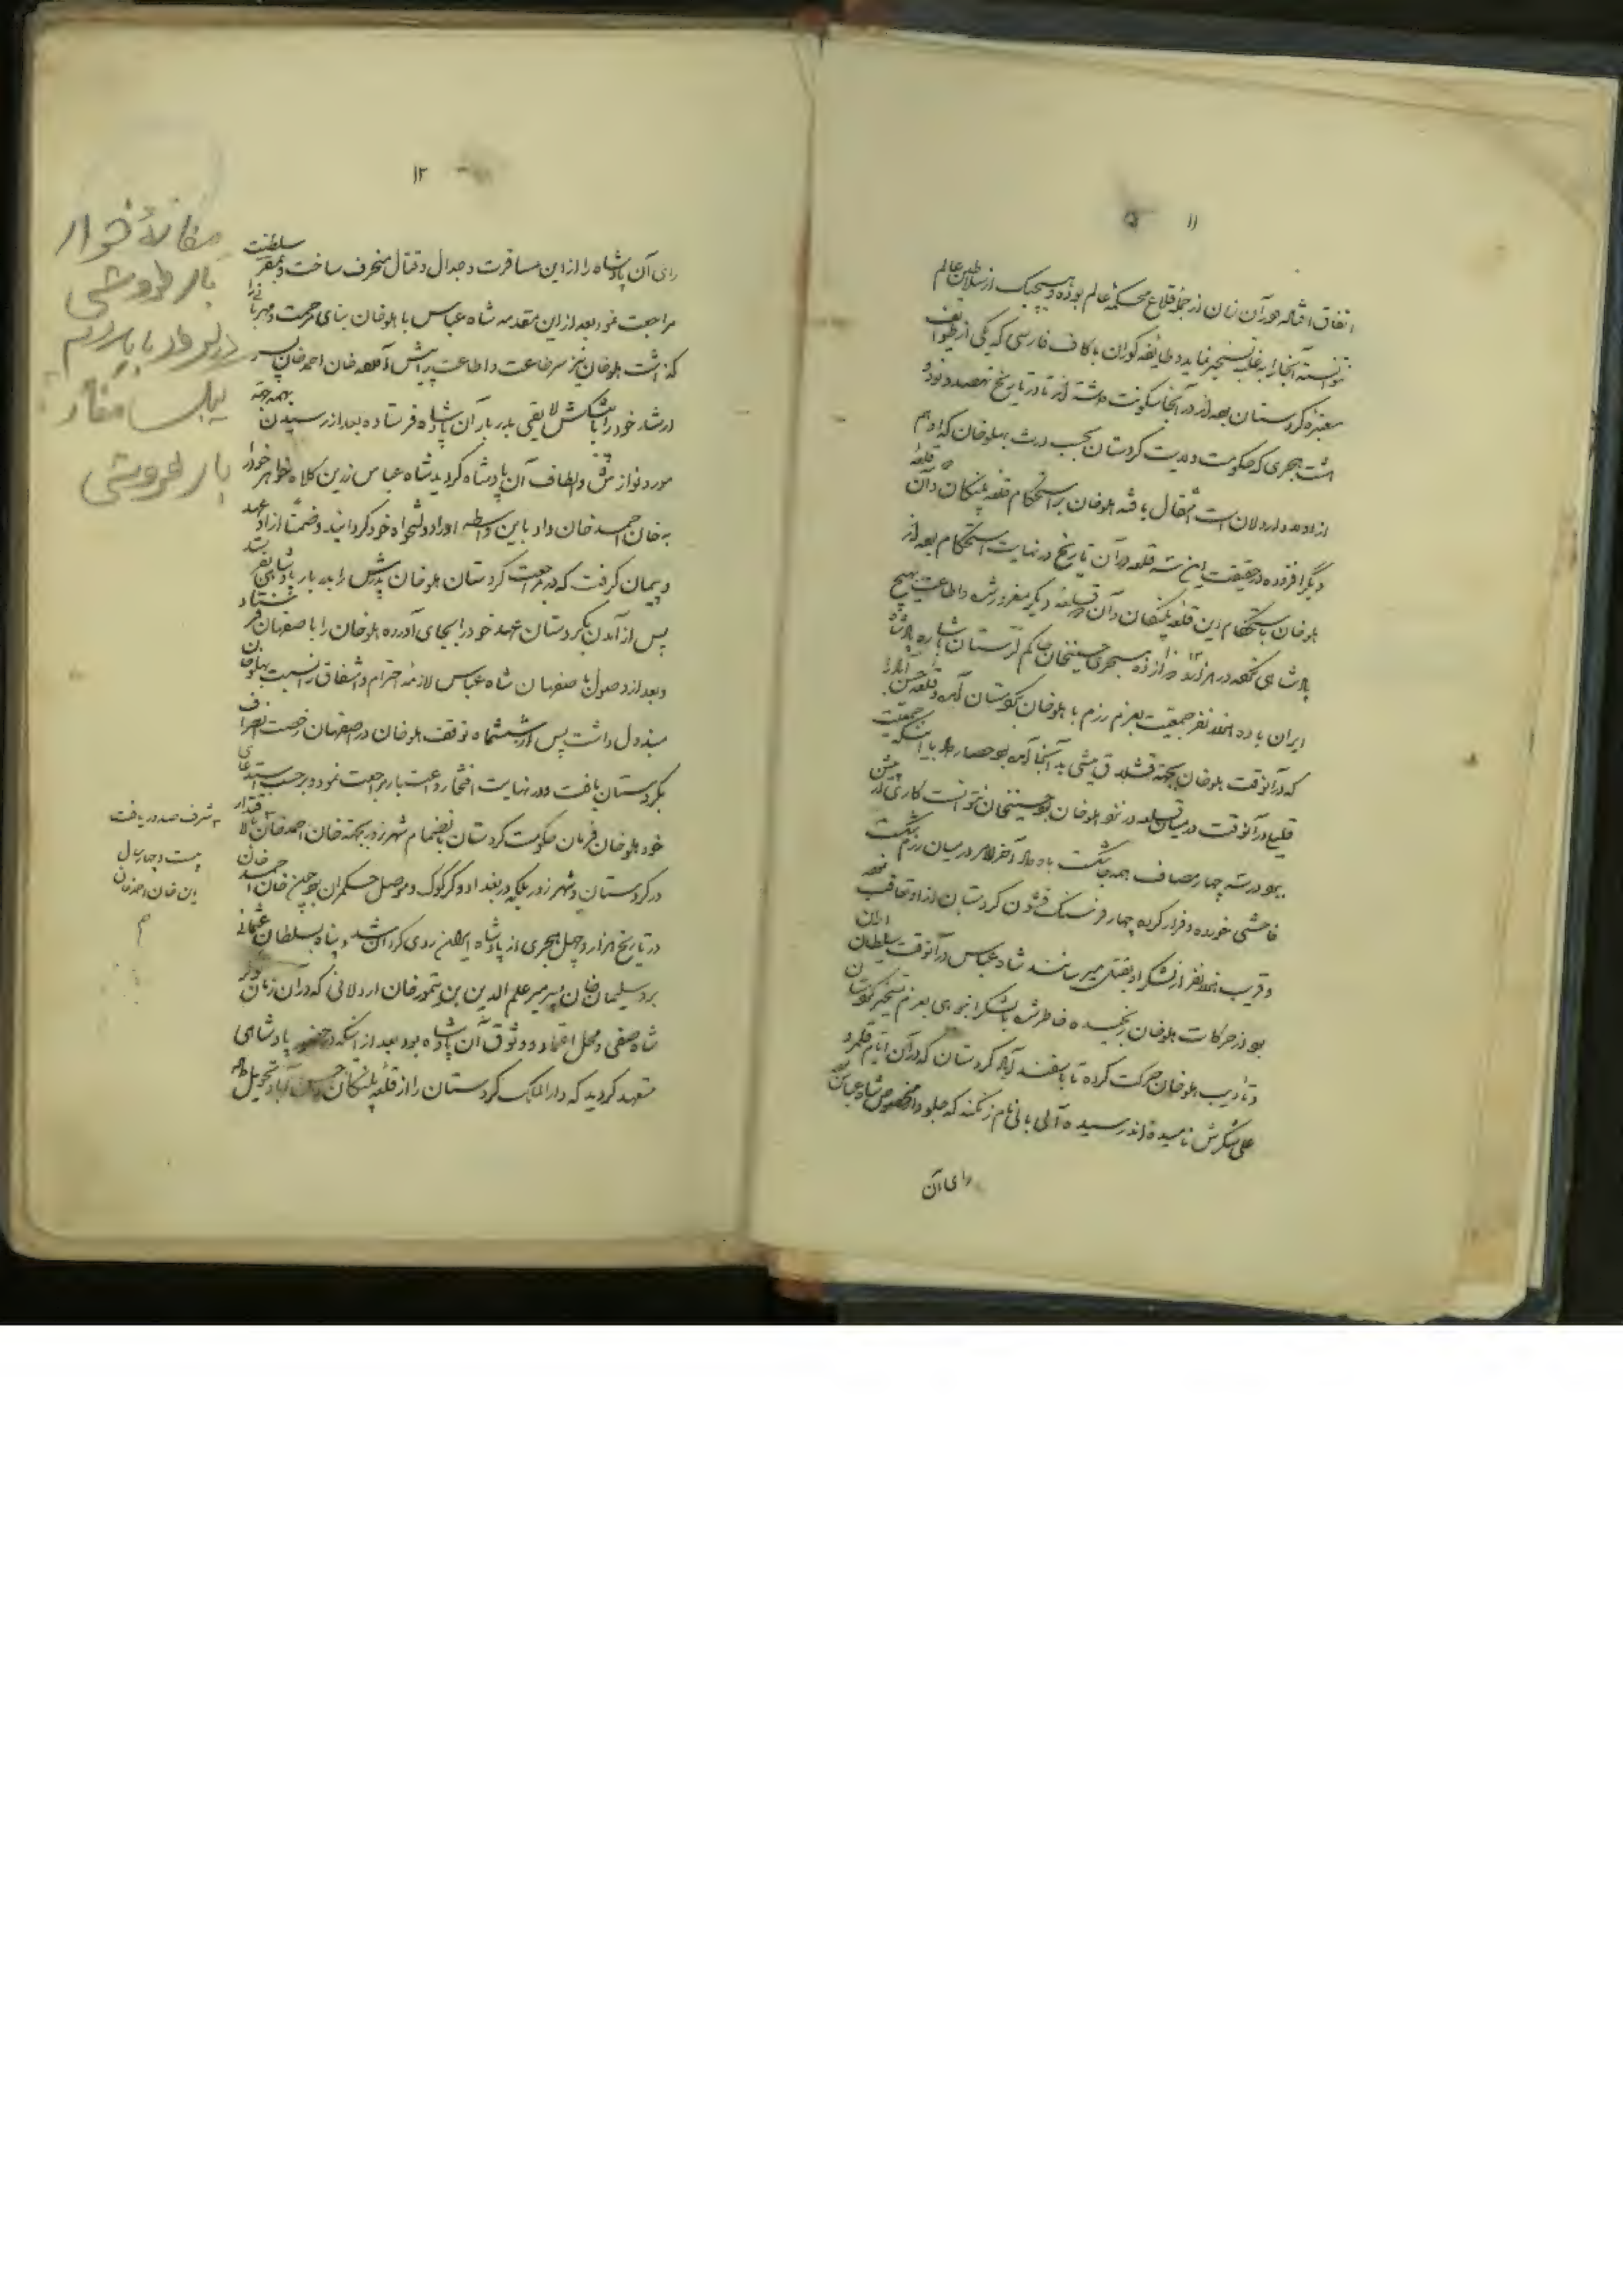 ۱۱
اتفاق افتاده در آن زمان از جمله قلاع محکمهٔ عالم بوده و هیچیک از سلاطین عالم
نتوانسته آنجا را به غلبه تسخیر نماید و طایفه کوران با کاف فارسی که یکی از طوایف
معتبره کردستان بوده‌اند در آنجا سکونت داشته‌اند تا در تاریخ نهصد و نود و
هشت هجری که حکومت ولایت کردستان بحسب ارث بهلوخان که او هم
از اولاد اردلان است انتقال یافته هلوخان بر استحکام قلعه پلنگان و آن دو قلعه
دیگر افزوده در حقیقت این سه قلعه در آن تاریخ در نهایت استحکام بوده‌اند
هلوخان باستحکام این قلعه پلنگان و آن دو قلعه دیگر مغرور شده اطاعت بهیچ
پادشاهی نکرده در هزار و هجری حسینخان حاکم لرستان باشاره پادشاه
ایران با ده هزار نفر جمعیت بعزم رزم با هلوخان بکردستان آمده قلعه حسن‌آباد را
که در آنوقت هلوخان بجهة قشلاق میشی به آنجا آمده بود حصار داد با اینکه جمعیت
قلیلی در آنوقت در میان قلعه در نزد هلوخان بود حسینخان نتوانست کاری از پیش
ببرد در سه چهار مصاف همه جا شکست باو داد آخرالامر در میان رزم شکست
فاحشی خورده و فرار کرده چهار فرسنگ قشون کردستان از او تعاقب نموده
و قریب هزار نفر از لشکر او بقتل میرسانند شاه عباس در آنوقت سلطان ایران
بود از حرکات هلوخان رنجیده خاطر شده با لشکر انبوهی بعزم تسخیر کردستان
و تأدیب هلوخان حرکت کرده تا باسفندآباد کردستان که در آن ایام قلمرو
علی شکرش نامیده‌اند رسیده آلی بالی نام زنگنه که جلودار مخصوص شاه عباس بود
رای آن
۱۲
رای آن پادشاه را از این مسافرت و جدال و قتال منحرف ساخت و بمقر سلطنت
مراجعت نمود بعد از این مقدمه شاه عباس با هلوخان بنای مرحمت و مهربانی را
گذاشت هلوخان نیز سر طاعت و اطاعت پیش آورده خان احمدخان پسر
ارشد خود را با پیشکش لایقی بدربار آن پادشاه فرستاده بعد از رسیدن بهمه جهة
مورد نوازش و الطاف آن پادشاه گردید شاه عباس زرین کلاه خواهر خود را
به خان احمد خان داد باین واسطه او را دولتخواه خود گردانید و ضمناً از او عهد
و پیمان گرفت که در مراجعت کردستان هلوخان پدرش را بدربار پادشاهی بفرستد
پس از آمدن بکردستان عهد خود را بجای آورده هلوخان را باصفهان فرستاد
و بعد از وصول باصفهان شاه عباس لازمهٔ احترام و اشفاق را نسبت بهلوخان
مبذول داشت پس از ششماه توقف هلوخان در اصفهان رخصت انصراف
بکردستان یافت و در نهایت افتخار و اعتبار مراجعت نمود و برحسب استدعای
خود هلوخان فرمان حکومت کردستان بانضمام شهرزور بجهة خان احمدخان
شرف صدور یافت
در کردستان و شهرزور بلکه در بغداد و کرکوک و موصل حکمران بود چون خان احمد خان
بیست و چهار سال
این خان احمدخان
م
در تاریخ هزار و چهل هجری از پادشاه ایران روی گردان شد و پناه بسلطان عثمانی
برد سلیمان خان پسر میر علم الدین بن تیمور خان اردلانی که در آن زمان در نزد
شاه صفی و محل اعتماد و وثوق آن پادشاه بود بعد از آنکه در حضور پادشاهی
متعهد گردید که دارالملک کردستان را از قلعه پلنگان و حسن آباد تحویل داده
بارفروشی